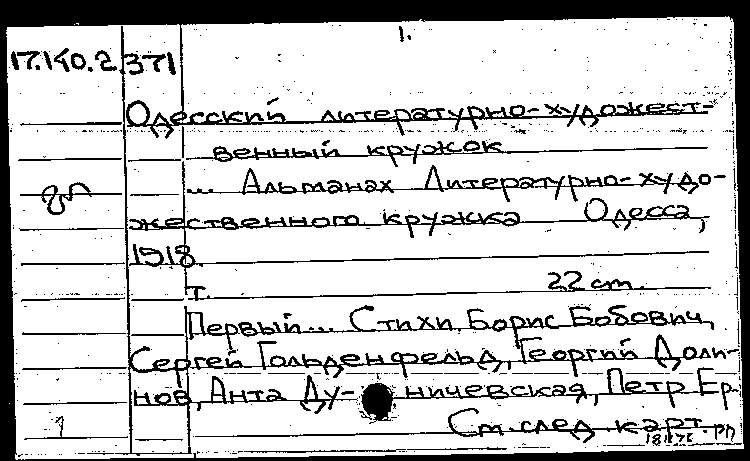 1.
17.Ко.2.371
Одесский литературно-художест-
венный кружок
... Альманах Литературно-худо-
жественного кружка Одесса,
1918.
т. 22 cm.
Первый... Стихи. Борис Бобович,
Сергей Гольденфельд, Георгий Доли-
нов, Анта Ду- ничевская, Петр Ер.
См. след. карт.